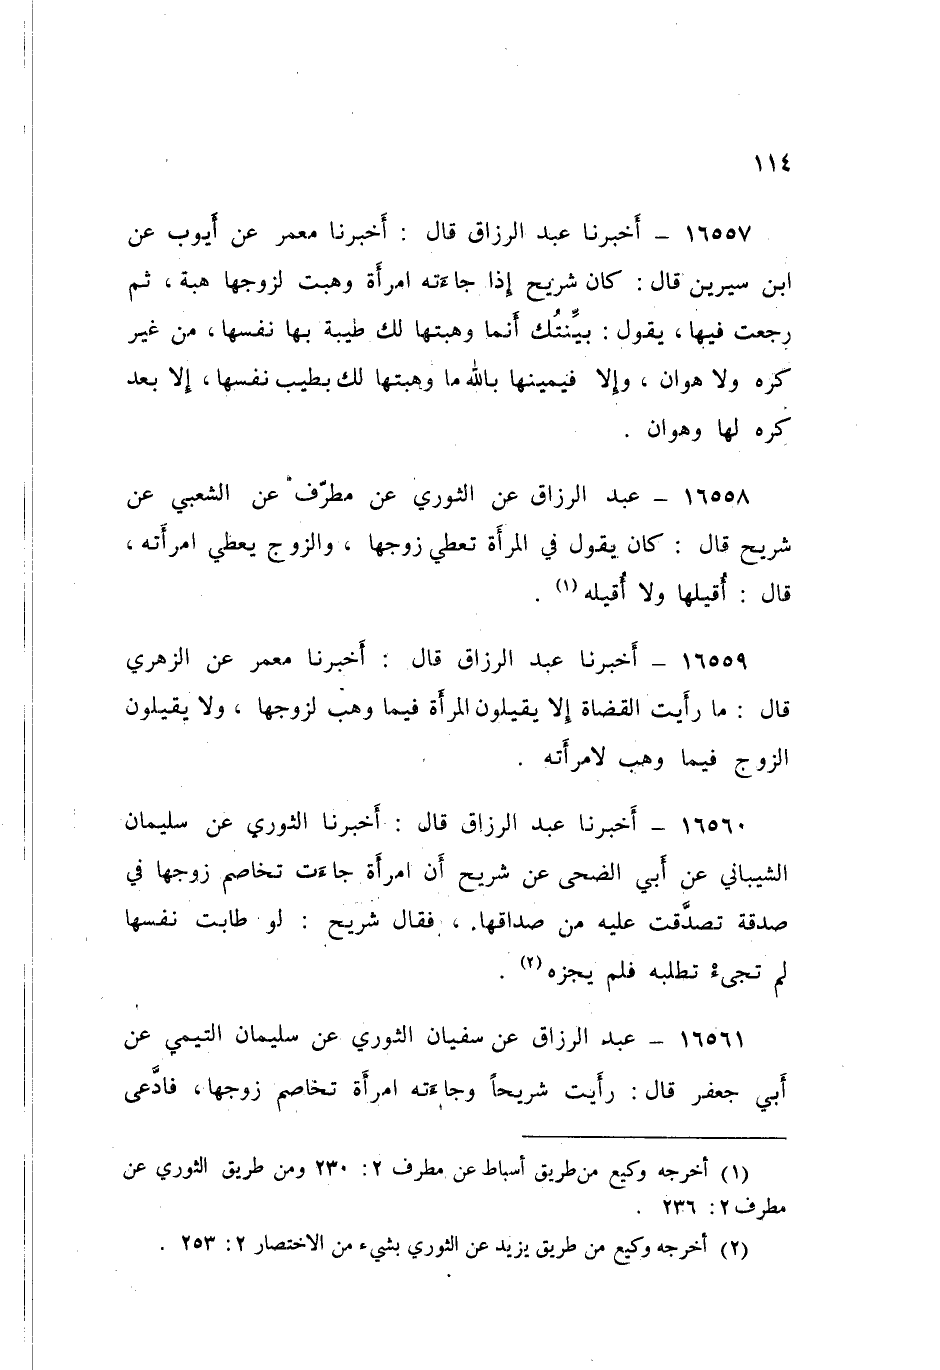 ١١٤
١٦٥٥٧ – أَخبرنا عبد الرزاق قال : أَخبرنا معمر عن أَيوب عن
ابن سيرين قال : كان شريح إِذا جاءَته امرأَة وهبت لزوجها هبة ، ثم
رجعت فيها ، يقول : بيِّنتُك أَنما وهبتها لك طيبة بها نفسها ، من غير
كره ولا هوان ، وإِلا فيمينها بالله ما وهبتها لك بطيب نفسها ، إِلا بعد
كره لها وهوان .
١٦٥٥٨ – عبد الرزاق عن الثوري عن مطرّف عن الشعبي عن
شريح قال : كان يقول في المرأَة تعطي زوجها ، والزوج يعطي امرأَته ،
قال : أُقيلها ولا أُقيله (١) .
١٦٥٥٩ – أَخبرنا عبد الرزاق قال : أَخبرنا معمر عن الزهري
قال : ما رأَيت القضاة إِلا يقيلون المرأَة فيما وهب لزوجها ، ولا يقيلون
الزوج فيما وهب لامرأَته .
١٦٥٦٠ – أَخبرنا عبد الرزاق قال : أَخبرنا الثوري عن سليمان
الشيباني عن أَبي الضحى عن شريح أَن امرأَة جاءَت تخاصم زوجها في
صدقة تصدَّقت عليه من صداقها ، فقال شريح : لو طابت نفسها
لم تجىءْ تطلبه فلم يجزه (٢) .
١٦٥٦١ – عبد الرزاق عن سفيان الثوري عن سليمان التيمي عن
أَبي جعفر قال : رأَيت شريحاً وجاءَته امرأَة تخاصم زوجها ، فادَّعى
(١) أخرجه وكيع من طريق أسباط عن مطرف ٢ : ٢٣٠ ومن طريق الثوري عن
مطرف ٢ : ٢٣٦ .
(٢) أخرجه وكيع من طريق يزيد عن الثوري بشيء من الاختصار ٢ : ٢٥٣ .